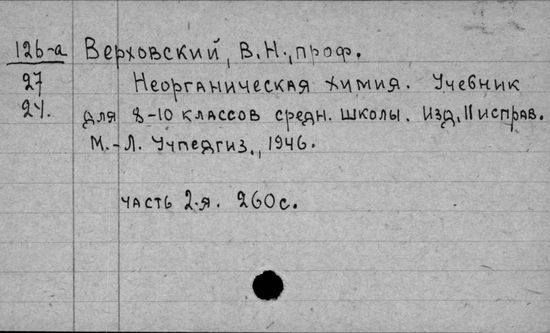 126-а Верховский, В.Н., проф.
27 Неорганическая химия. Учебник
24. для 8-10 классов средн. школы. Изд. II исправ.
М.-Л. Учпедгиз., 1946.
часть 2-я. 260с.